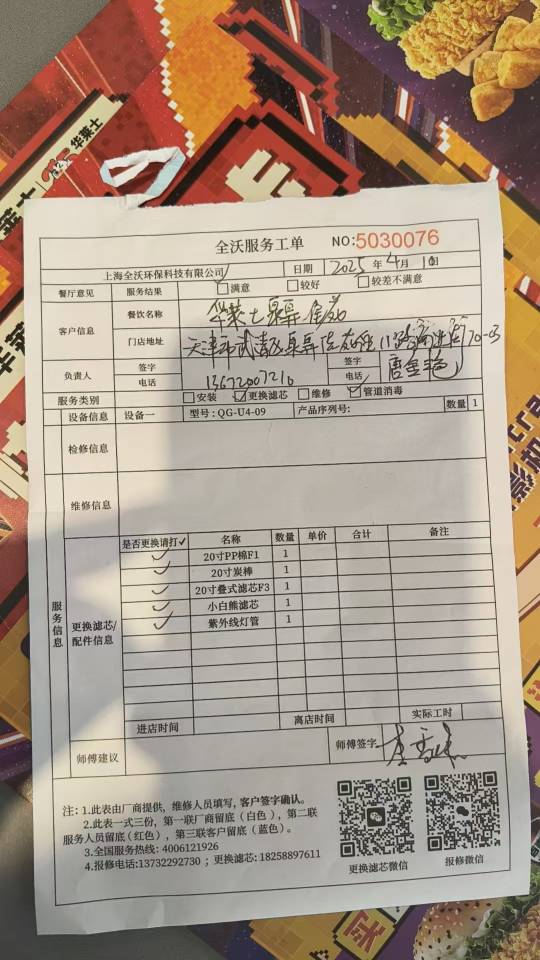 华莱士
华莱士
全沃服务工单 NO:5030076
上海全沃环保科技有限公司 日期 2025 年 4 月 10 日
餐厅意见 服务结果 满意 较好 较差不满意
客户信息 餐饮名称 华莱士泉昇
门店地址 天津市武清区泉昇
负责人 签字 签字
电话 13672007210 电话
服务类别 安装 更换滤芯 维修 管道消毒
设备信息 设备一 型号:QG-U4-09 产品序列号: 数量 1
检修信息
维修信息
服务信息
更换滤芯/配件信息
是否更换请打✓ 名称 数量 单价 合计 备注
✓ 20寸PP棉F1 1
✓ 20寸炭棒 1
✓ 20寸叠式滤芯F3 1
✓ 小白熊滤芯 1
✓ 紫外线灯管 1
进店时间 离店时间 实际工时
师傅建议 师傅签字
注:1.此表由厂商提供,维修人员填写,客户签字确认。
2.此表一式三份,第一联厂商留底(白色),第二联
服务人员留底(红色),第三联客户留底(蓝色)。
3.全国服务热线: 4006121926
4.报修电话:13732292730 ; 更换滤芯: 18258897611
更换滤芯微信 报修微信